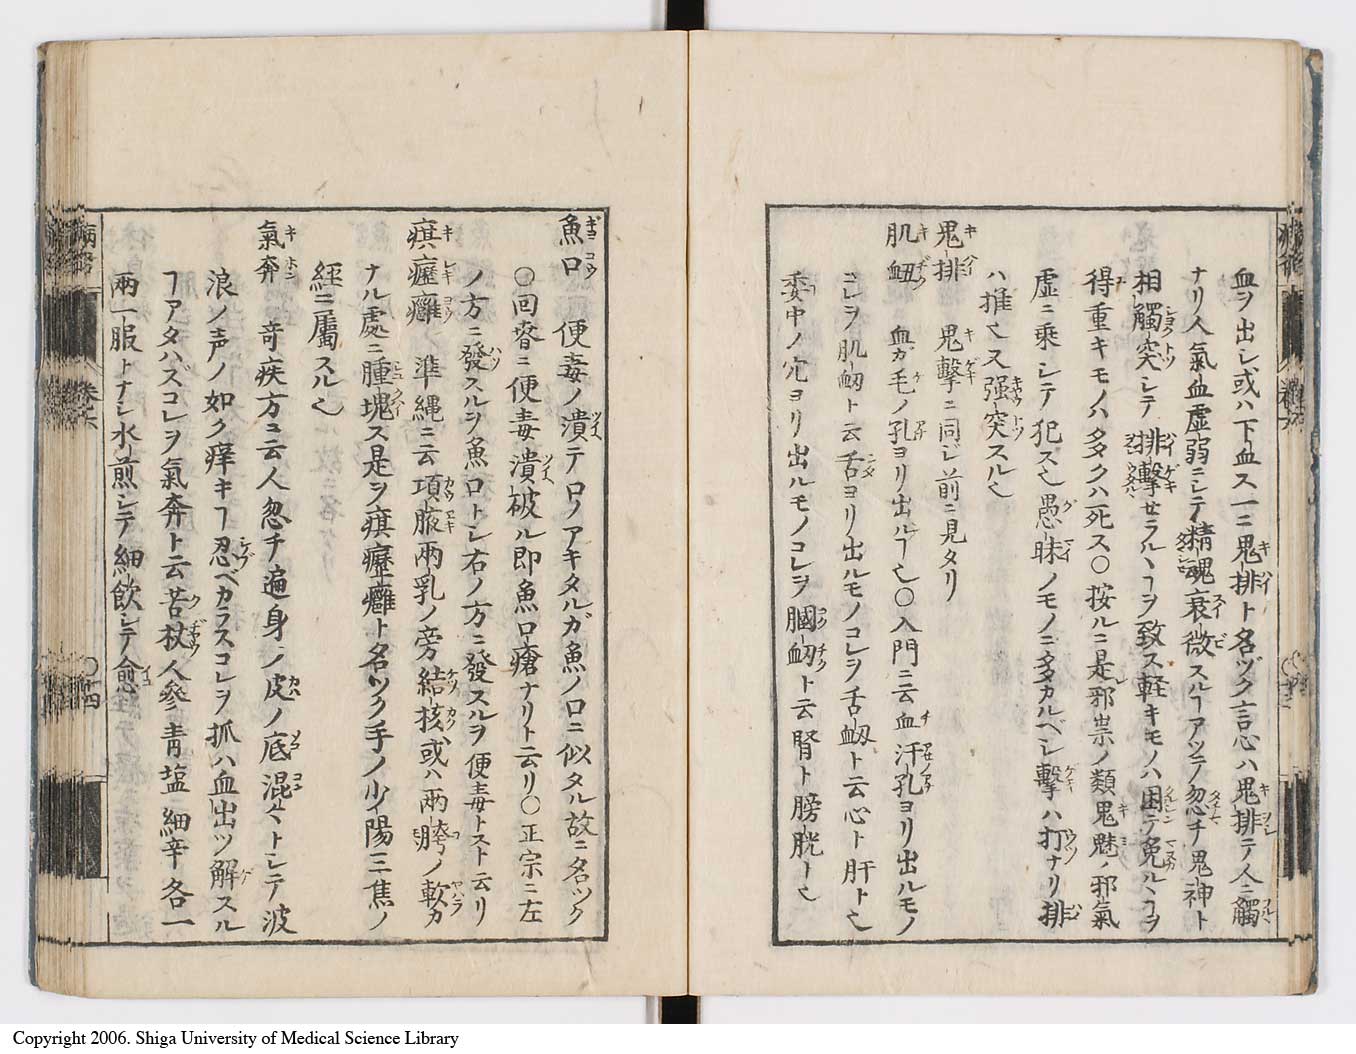 血ヲ出シ或ハ下血ス一ニ鬼排ト名ヅク言心ハ鬼排テ人ニ觸
ナリ人氣血虚弱ニシテ精魂衰微スルヿアツテ忽チ鬼神ト
相觸突シテ排擊セラルヽヿヲ致ス軽キモノハ困テ免ルヽヿヲ
得重キモノハ多クハ死ス○按ルニ是邪祟ノ類鬼魅ノ邪氣
虚ニ乗シテ犯ス也愚昧ノモノニ多カルベシ擊ハ打ナリ排
ハ推也又强突スル也
鬼排 鬼擊ニ同ジ前ニ見タリ
肌衄 血カ毛ノ孔ヨリ出ルヿ也○入門ニ云血汗孔ヨリ出ルモノ
コレヲ肌衄ト云舌ヨリ出ルモノコレヲ舌衄ト云心ト肝ト也
委中ノ穴ヨリ出ルモノコレヲ膕衄ト云腎ト膀胱ト也
魚口 便毒ノ潰テ口ノアキタルガ魚ノ口ニ似タル故ニ名ツク
○回春ニ便毒潰破ル即魚口瘡ナリト云リ○正宗ニ左
ノ方ニ發スルヲ魚口トシ右ノ方ニ發スルヲ便毒トスト云リ
㾨癧癰 準縄ニ云項腋兩乳ノ旁結核或ハ兩胯ノ軟カ
ナル處ニ腫塊ス是ヲ㾨癧癰ト名ツク手ノ少陽三焦ノ
經ニ屬スル也
氣奔 竒疾方ニ云人忽チ遍身ノ皮ノ底混々トシテ波
浪ノ声ノ如ク痒キヿ忍ベカラスコレヲ抓ハ血出ツ解スル
ヿアタハズコレヲ氣奔ト云苦杖人參青塩細辛各一
兩一服トナシ水煎シテ細飲シテ愈
Copyright 2006. Shiga University of Medical Science Library